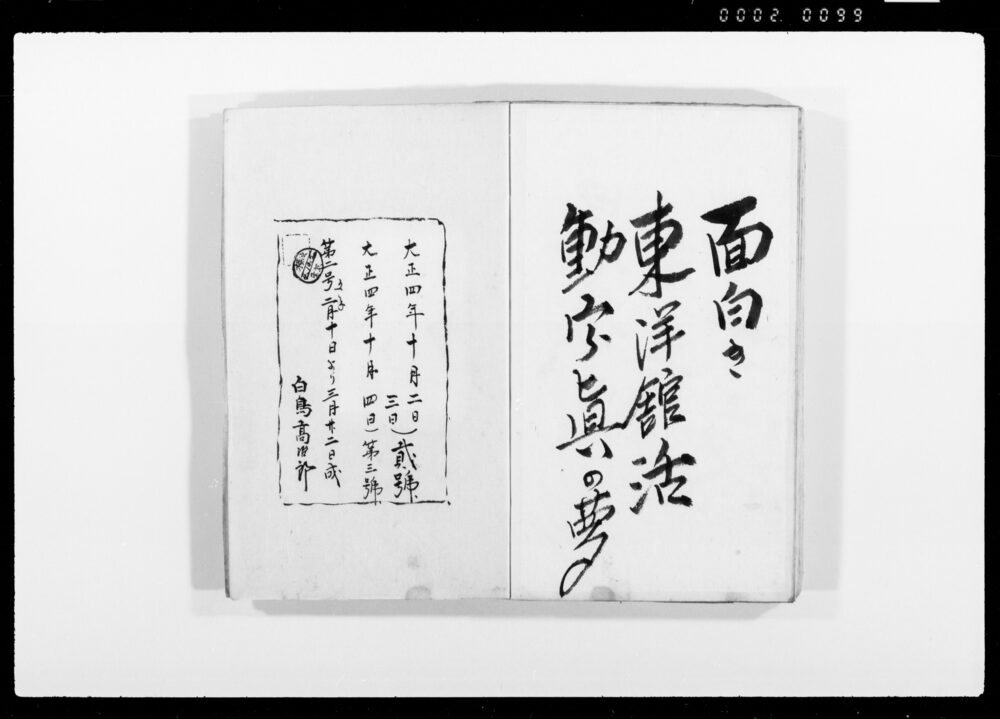 0002 0099
面白き
東洋館活
動写眞の夢
大正四年十月二日
三日)貳號
大正四年十月四日)第三號
第二号二月十日より三月廿二日成
白鳥高治郎